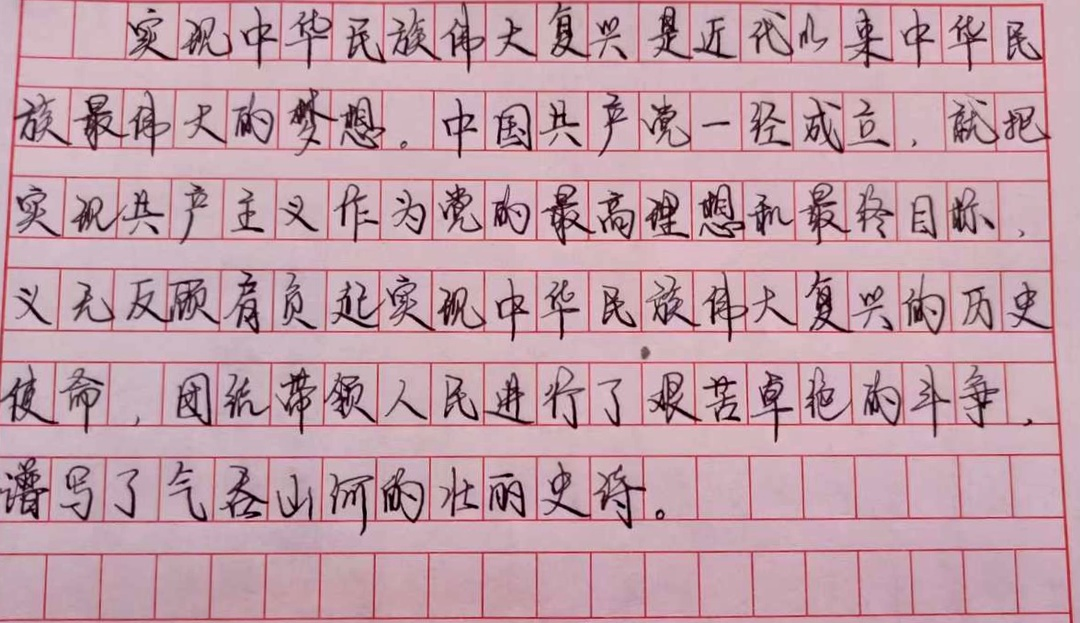 实现中华民族伟大复兴是近代以来中华民
族最伟大的梦想。中国共产党一经成立，就把
实现共产主义作为党的最高理想和最终目标，
义无反顾肩负起实现中华民族伟大复兴的历史
使命，团结带领人民进行了艰苦卓绝的斗争，
谱写了气吞山河的壮丽史诗。